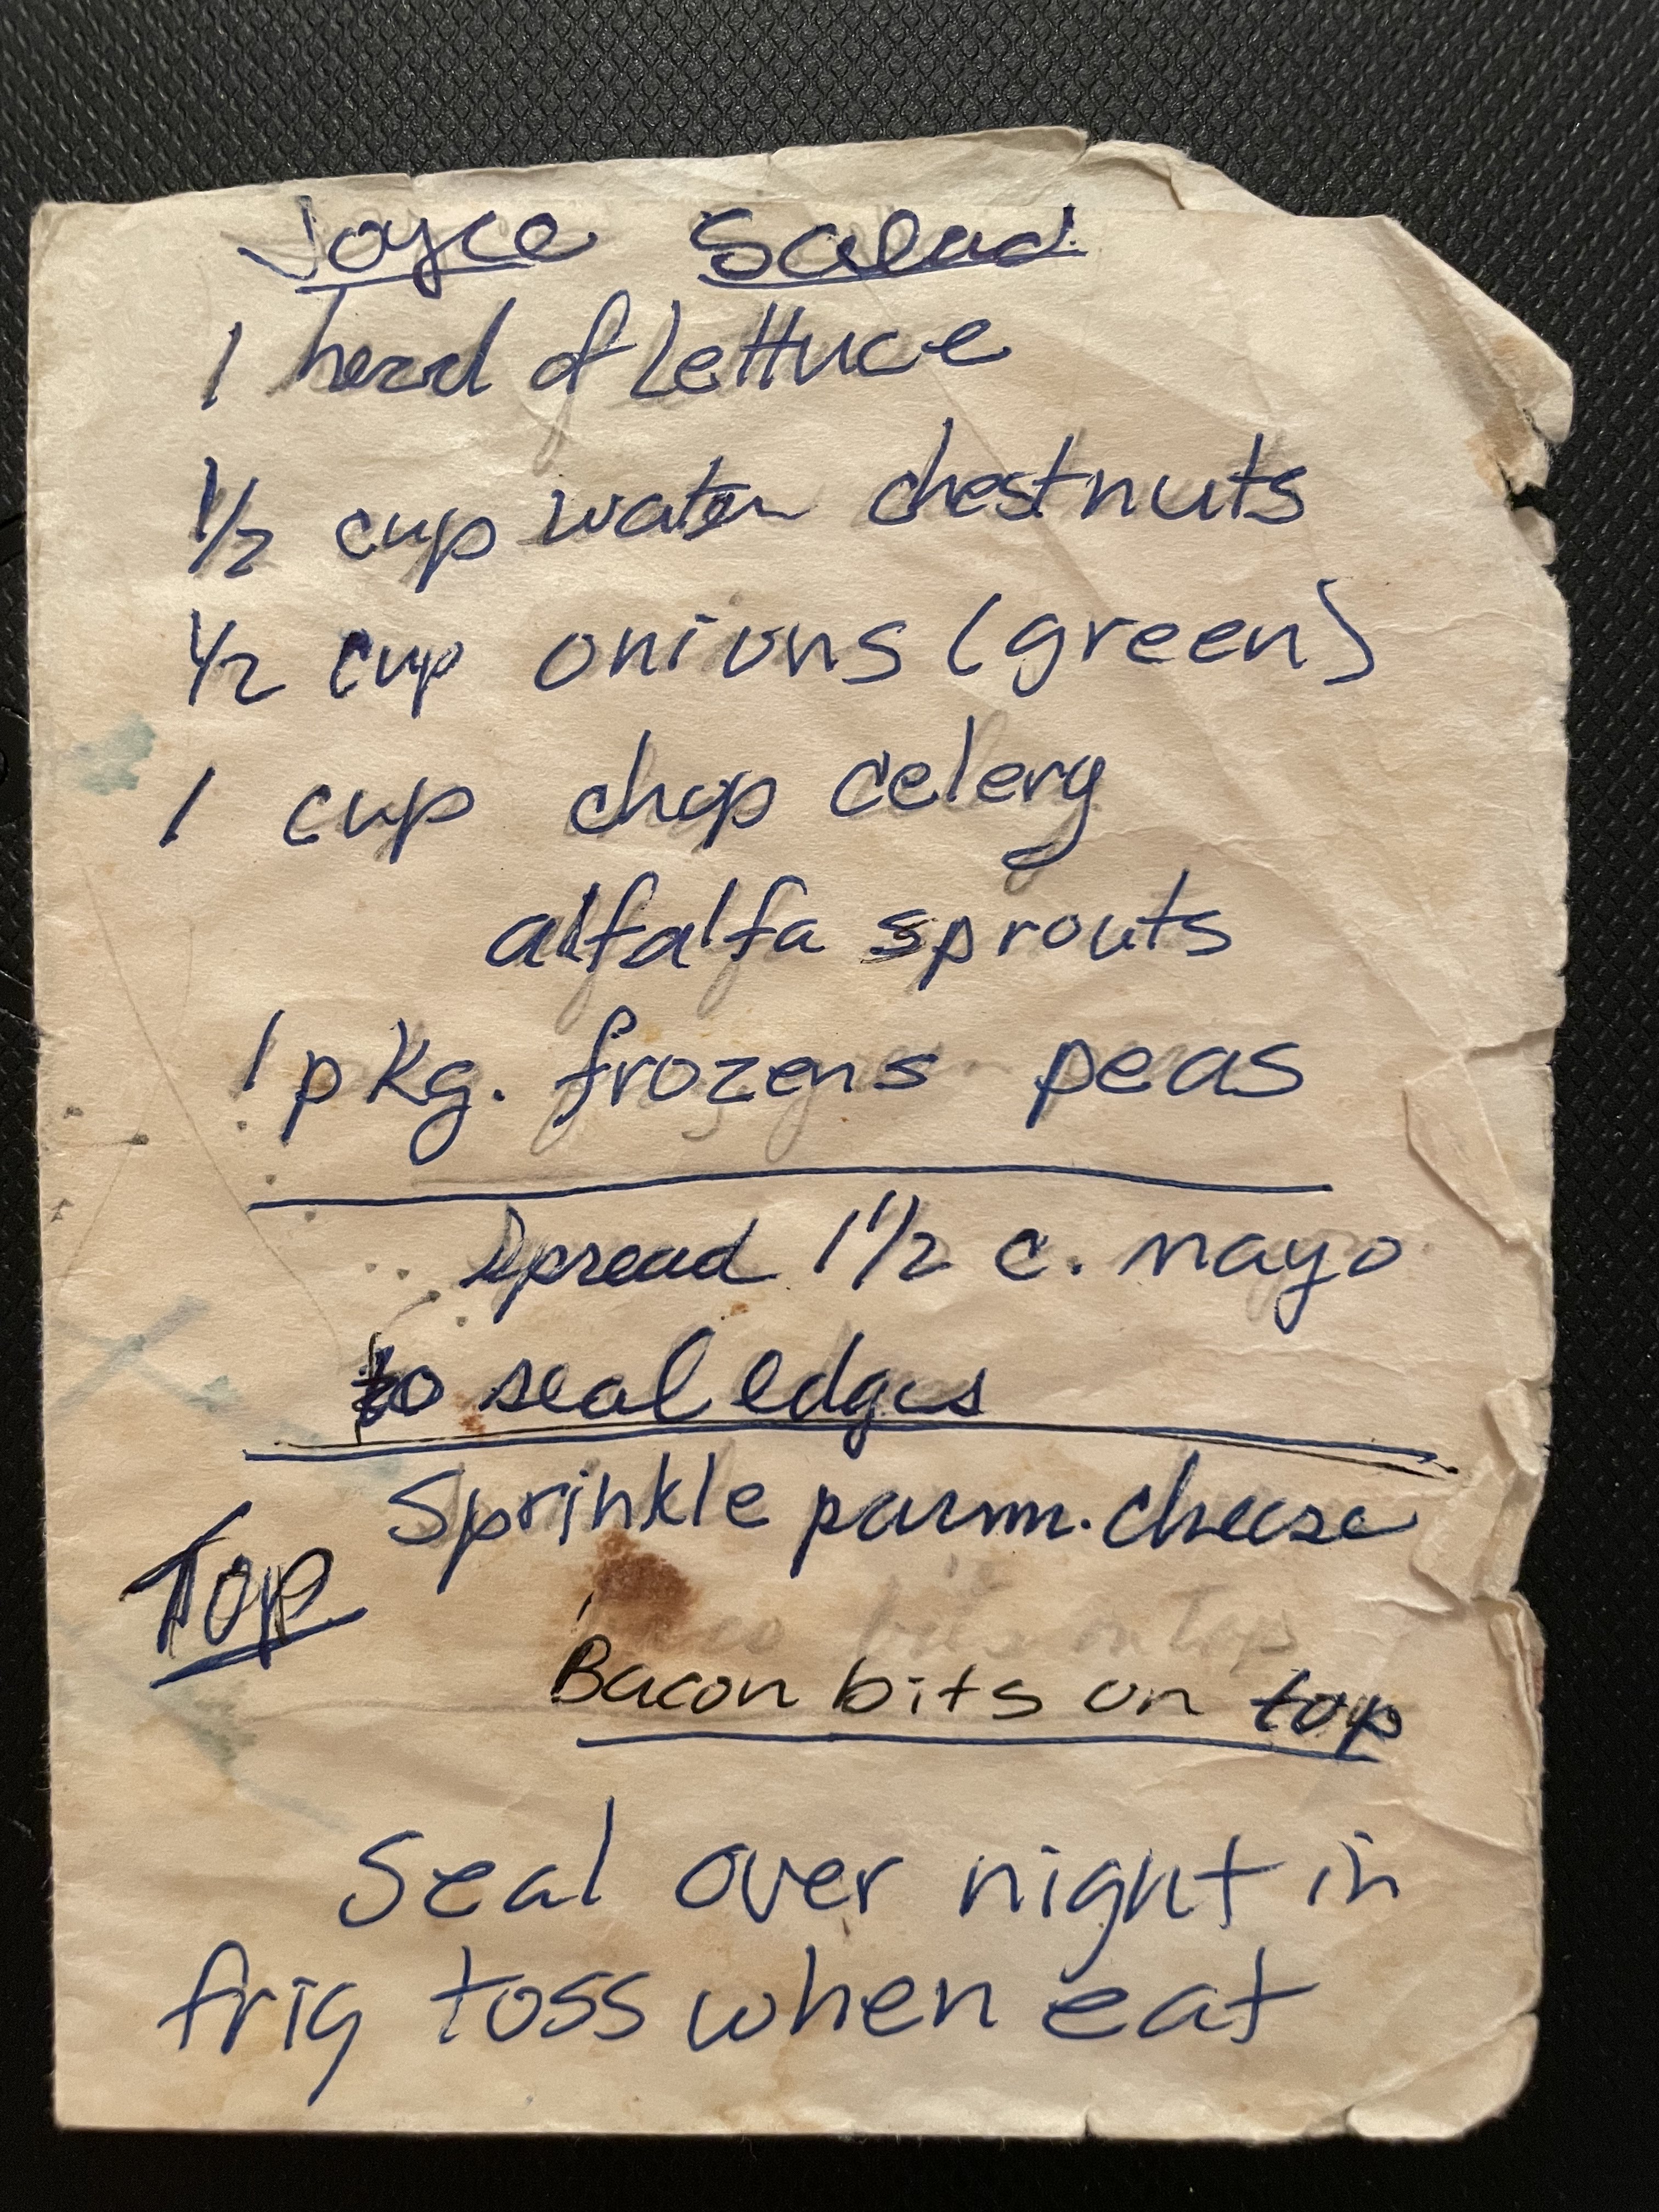 Joyce Salad
1 head of Lettuce
1/2 cup water chestnuts
1/2 cup onions (green)
1 cup chop celery
alfalfa sprouts
1 pkg. frozens peas
Spread 1 1/2 c. mayo
to seal edges
Sprinkle parm. cheese
Top
bits on top
Bacon bits on top
Seal over night in
frig toss when eat